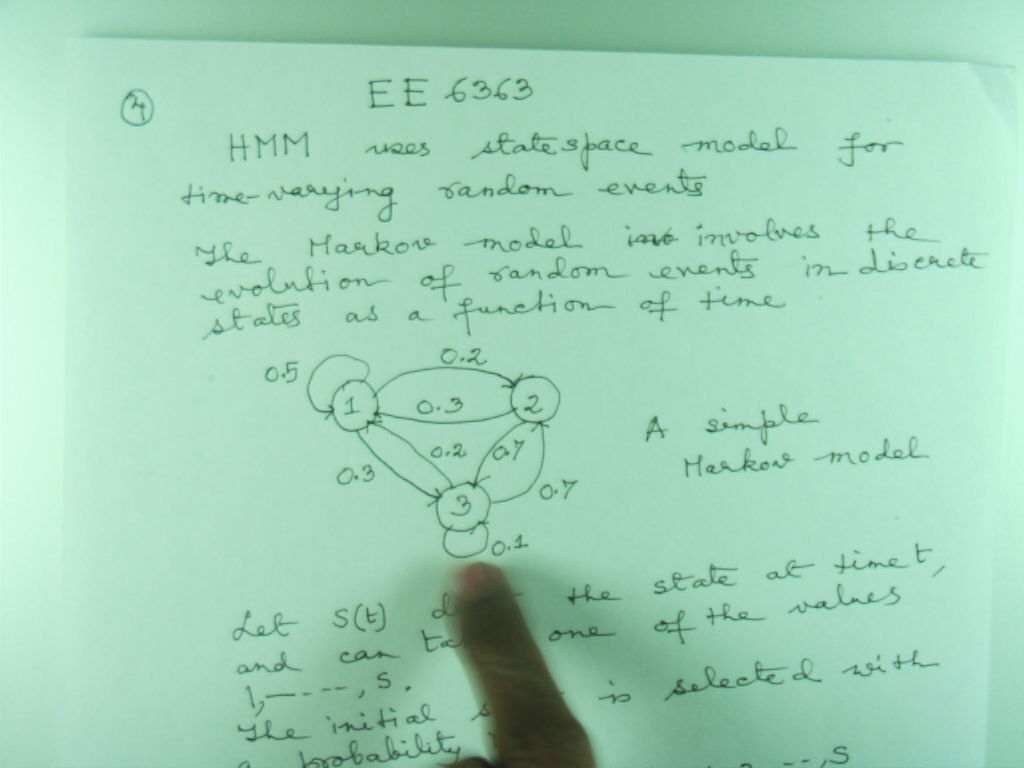 4
EE 6363
HMM uses state space model for
time-varying random events
The Markov model involves the
evolution of random events in discrete
states as a function of time
0.5
0.2
1
0.3
2
0.2
0.7
0.3
3
0.7
0.1
A simple
Markov model
Let S(t) the state at time t,
and can one of the values
1,-----, S.
The initial is selected with
probability
--, S